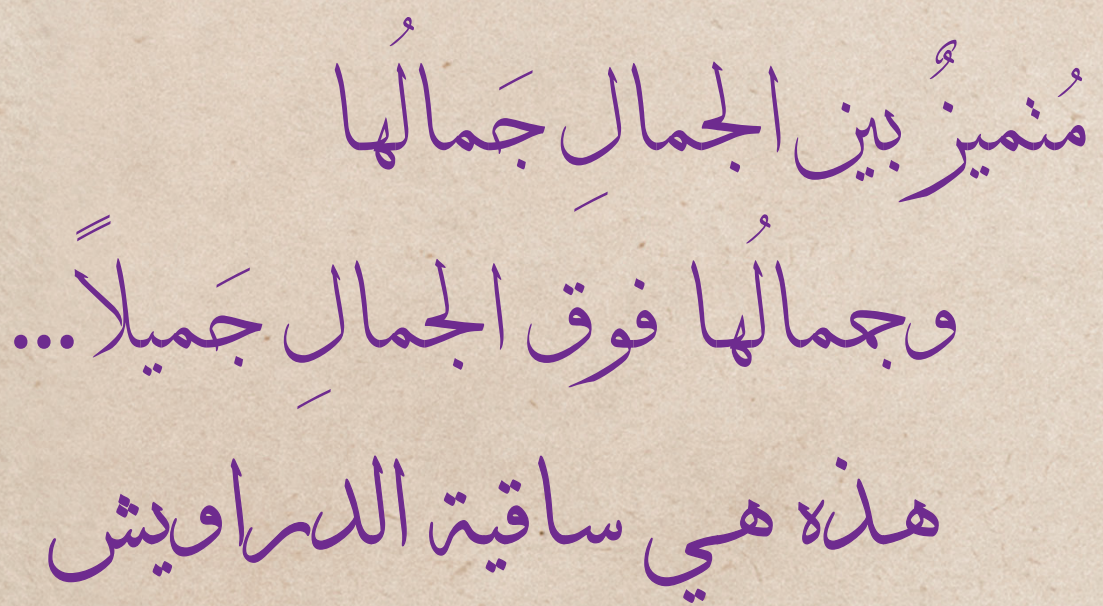 مُتميزٌ بين الجمالِ جَمالُها
وجمالُها فوق الجمالِ جَميلاً...
هذه هي ساقية الدراويش